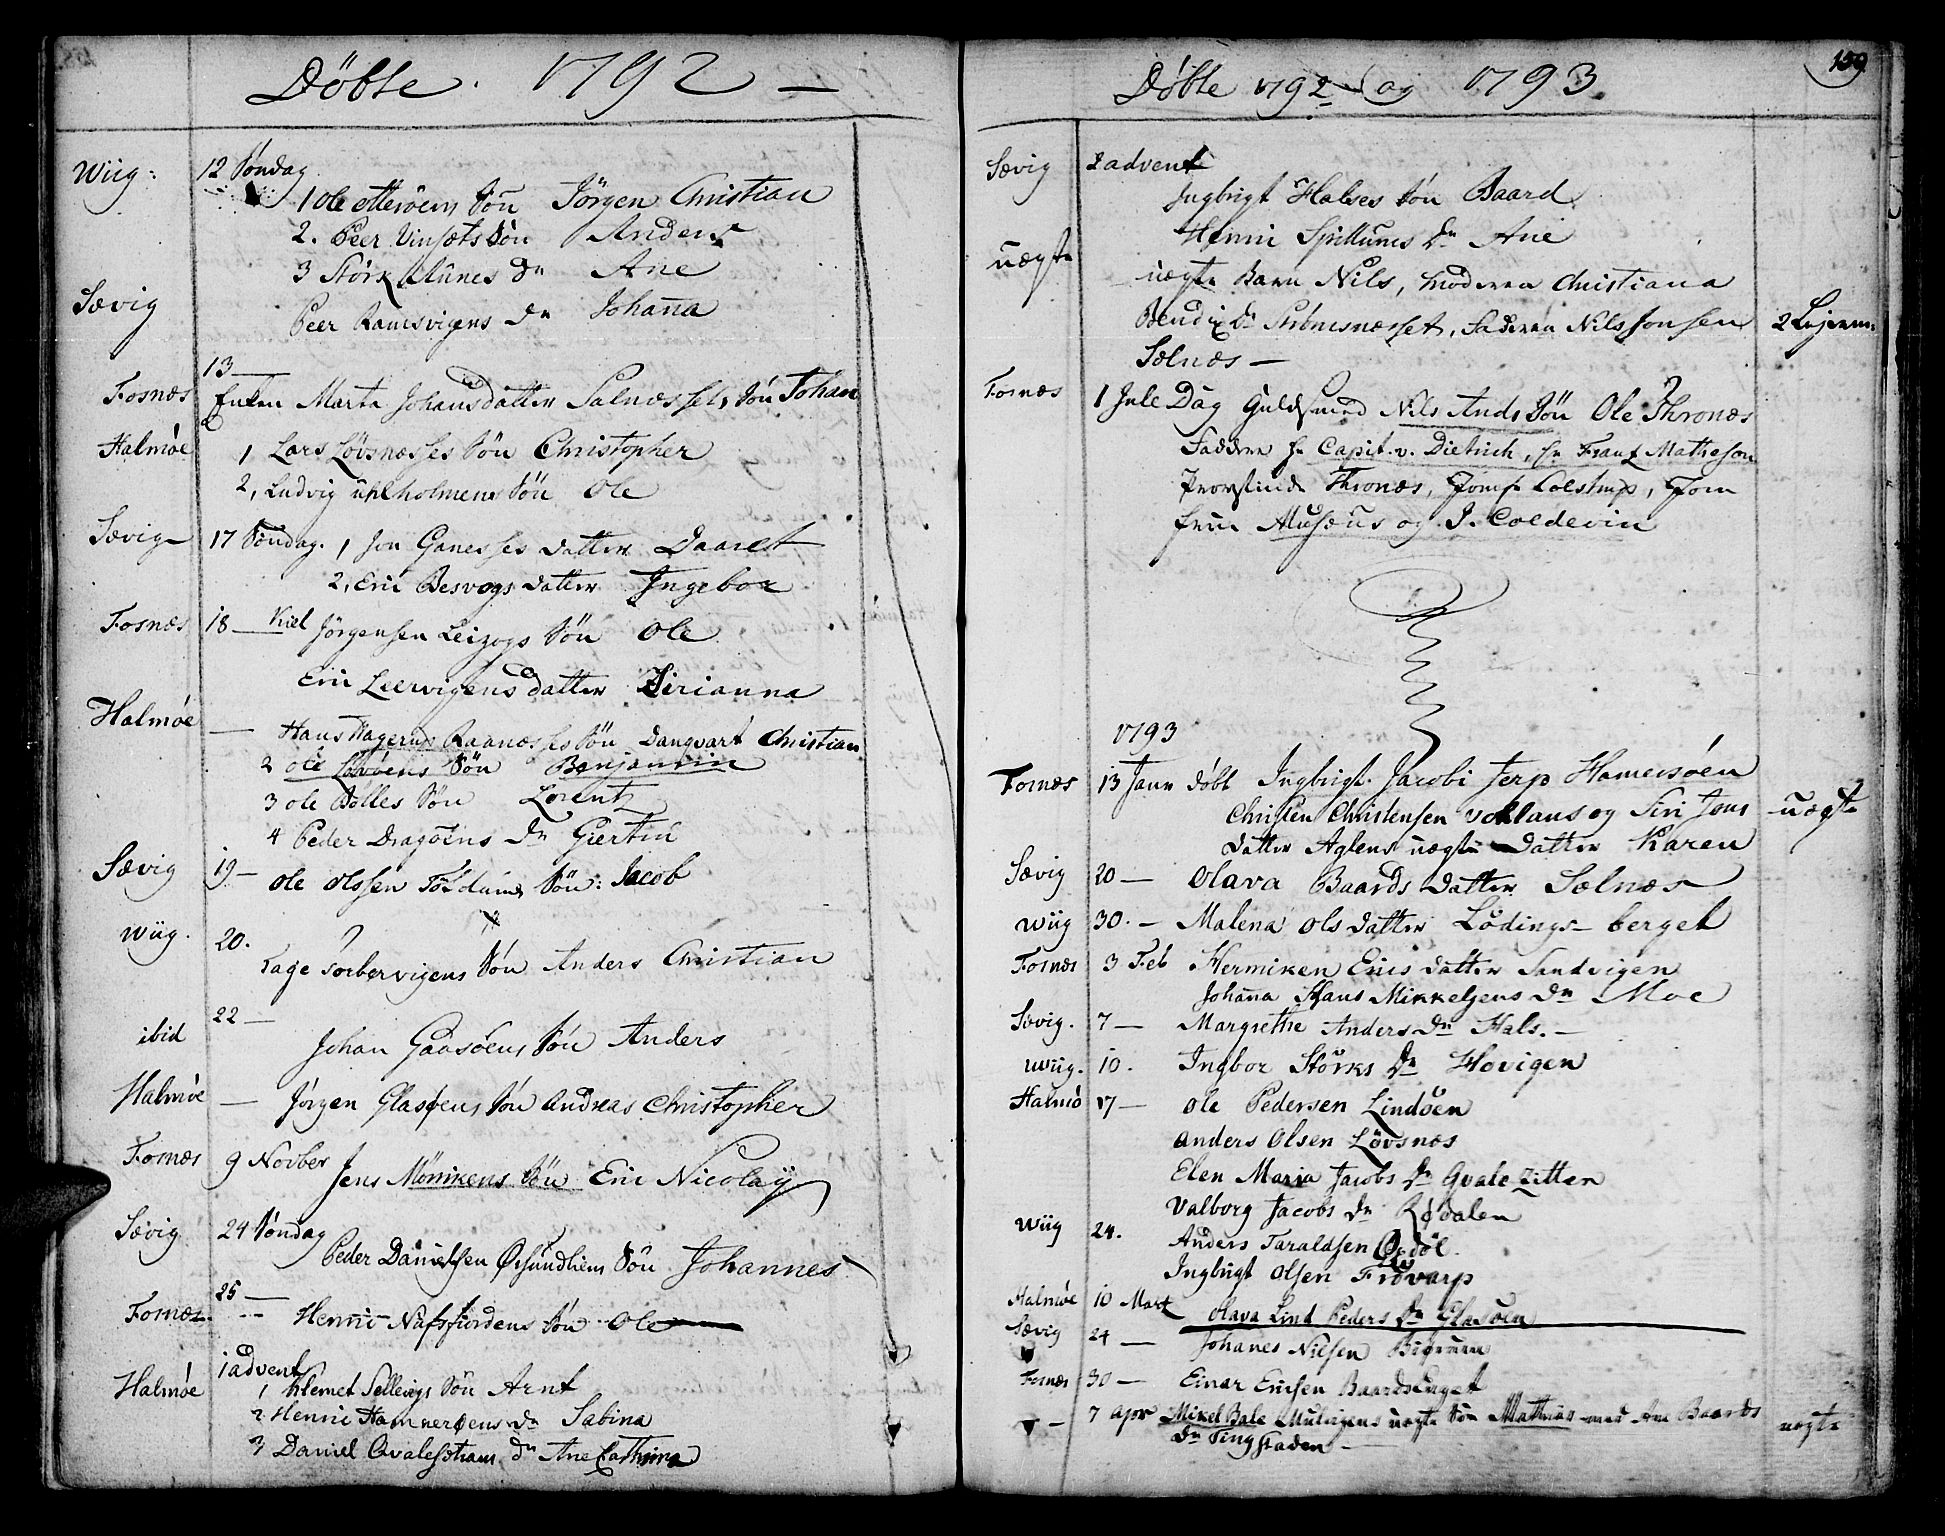 Döbte. 1792 —
Wiig: 12 Søndag
1 Ole Otterøens Søn Jörgen Christian
2. Peer Vinsets Søn Anders
3 Störk Dn Ane
Sævig
Peer Ramsvigens Dn Johanna
13 —
Fosnæs Enken Marta Johansdatter Salnæssets Søn Johan
Halmøe 1 Lars Lövsnæsses Søn Christopher
2, Ludvig holmens Søn Ole
Sævig 17 Søndag. 1 Jon Ganesses datter Daaret
2, Eric Besvogs datter Ingebor
Fosnæs 18 — Kiel Jörgensen Leizogs Søn Ole
Eric Leervigens datter Sirianna
Halmøe — Hans Hagerups Raanæsses Søn Dangvart Christian
2 Ole Lövöens Søn Benjamin
3 Ole Bölles Søn Lorentz
4 Peder Dragöens Dn Giertru
Sævig 19 — Ole Olssen Søn: Jacob
Wiig. 20.
Tage Sørbervigens Søn Anders Christian
22 —
ibid Johan Gaasöens Søn Anders
Halmøe — Jörgen Glasøens Søn Andreas Christopher
Fosnæs 9 Novber Jens Mörrikens Søn Eric Nicolaÿ
Sævig 24 Søndag
Peder Danielsen Ørsundhiem Søn Johannes
25 —
Fosnæs -- Henric Nafsfiordens Søn Ole
1 advent
Halmøe 1 Klemet Sellevigs Søn Arnt
2 Henric Hammerøens Dn Sabina
3 Daniel Qvalestrans Dn Ane Cathrina
Döbte 1792 og 1793. 159
Sævig 2 advent
Ingbrigt Halses Søn Baard
Henric Spillums Dn Ane
uægte uægte Barn Nils, Moderen Christiana
Bendix Dr Strömsnæsset, Faderen Nils Jonsen 2 Lejerm:
Sælnæs —
Fosnæs 1 Jule Dag Guldsmed Nils Ands Søn Ole Thronæs
Faddere hr Capit. v. Dietrich, hr Frantz Matheson
Provstinde Thronæs, Jomfr Colstrup, Jom
frue Musæus og J. Coldevin
1793
Fosnæs 13 Janr döbt Ingbrigt Jacobi Jerp Hamersöen
Christen Christensen og Siri Jons uægte
datter Aglens uægte Datter Karen
Sævig 20 — Olava Baards datter Sælnæs
Wiig 30. — Malena Ols datter Lödings-berget
Fosnæs 3 Feb Hermiken Erics datter Sandvigen
Johanna Hans Mikkelsens Dn Moe
Sævig. 7 — Margrethe Anders Dn Hals. —
Wiig. 10. Ingbor Störks Dr Hovigen
Halmö 17 — Ole Pedersen Lindöen
Anders Olsen Lövsnæs
Elen Maria Jacobs Dn Qvale Zitter
Valborg Jacobs Dn Rödalen
Wiig 24. Anders Taraldsen Opdöl.
Ingbrigt Olsen Frövarp
Halmøe 10 Mart Olava Lind Peders Dn Glasöen
Sævig 24 — Johanes Nilsen
Fosnæs 30 — Einar Ericsen
— 7 Apr Mikel Bale Mulvigens uægte Søn Mathias med Ane Baards uægte
Dn Tingstaden —